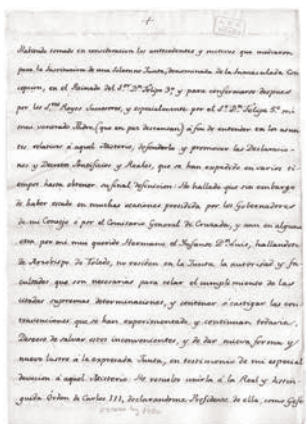 Habiendo tomado en consideracion los antecedentes y motivos que mediaron
para la formacion de una Solemne Junta, denominada de la Inmaculada Con-
cepcion, en el Reinado del S.or D.n Felipe 3.º y para conformarse despues
por los S.res Reyes Sucesores, y especialmente por el S.or D.n Felipe 5.º mi
muy venerado Padre (que en paz descansan) á fin de entender en los asun-
tos relativos á aquel Misterio, defenderlo y promover las Declaracio-
nes y Decretos Pontificios y Reales, que se han expedido en varios ti-
empos hasta obtener su final definicion: He hallado que sin embargo
de haber estado en muchas ocasiones presidida por los Gobernadores
de mi Consejo ó por el Comisario General de Cruzada, y aun en alguna
otra por mi muy querido Hermano el Infante D.n Luis, hallandose
de Arzobispo de Toledo, no residen en la Junta la autoridad y fa-
cultades que son necesarias para celar el cumplimiento de las
citadas supremas determinaciones, y contener ó castigar las con-
travenciones que se han experimentado, y continuan todavia.
Deseoso de salvar estos inconvenientes, y de dar nueva forma y
nuevo lustre á la expresada Junta, en testimonio de mi especial
devocion á aquel Misterio: He resuelto unirla á la Real y distin-
guida Orden de Carlos III, declarandome Presidente de ella, como Gefe